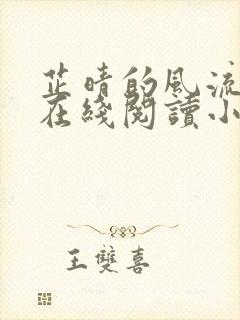 芷晴的风流
在綫閱讀小
王雙喜